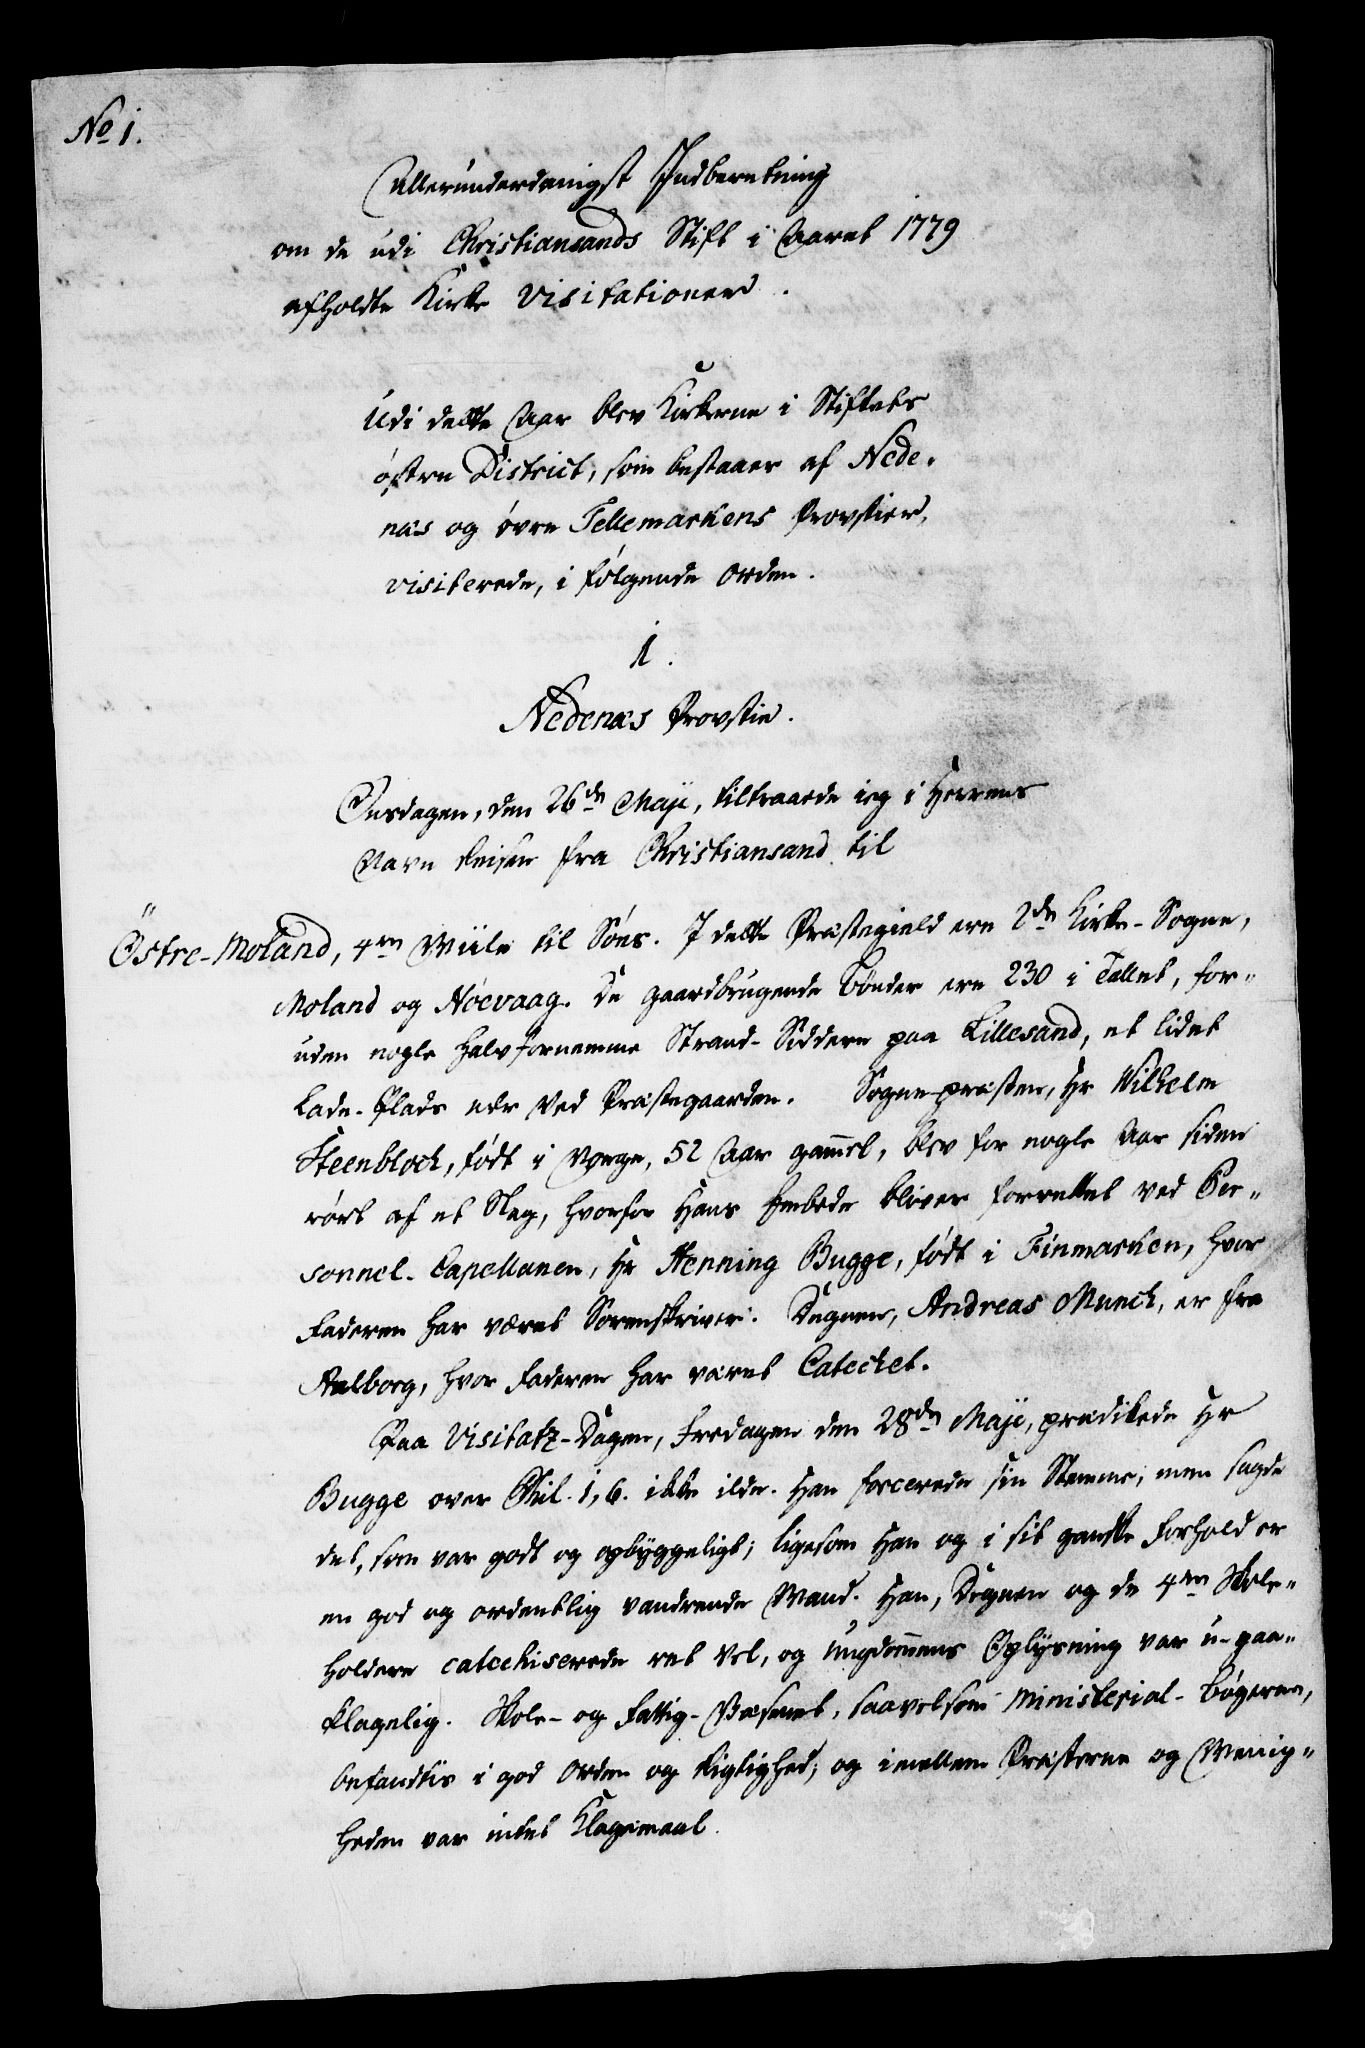 No 1.
Allerunderdanigst Indberetning
om de udi Christiansands Stift i Aaret 1779
afholdte Kirke Visitationer.
Udi dette Aar blev Kirkerne i Stiftets
østre District, som bestaaer af Nede-
næs og øvre Tellemarkens Provstier,
visiterede, i følgende Orden.
1.
Nedenæs Provstie.
Onsdagen, den 26de Maji, tiltraadte ieg i Herrens
Navn Reisen fra Christiansand til
Östre-Moland, 4re Miile til Søes. I dette Præstegield ere 2de Kirke-Sogne,
Moland og Høevaag. De gaardbrugende Bønder ere 230 i Tallet, for-
uden nogle halvfornemme Strand-Siddere paa Lillesand, et lidet
Lade-Plads nær ved Præstegaarden. Sognepræsten, Hr Wilhelm
Steenbloch, født i Norge, 52 Aar gam̄el, blev for nogle Aar siden
rørt af et Slag, hvorfor Hans Embede bliver forrettet ved Per-
sonnel-Capellanen, Hr Henning Bugge, født i Finmarken, hvor
Faderen har været Sorenskriver. Degnen, Andreas Munch, er fra
Aalborg, hvor Faderen har været Catechet.
Paa Visitatz-Dagen, Fredagen den 28de Maji, prædikede Hr
Bugge over Phil. 1, 6. ikke ilde. Han forcerede sin Stemme; men sagde
det, som var godt og opbyggeligt; ligesom Han og i sit gandske Forhold er
en god og ordentlig vandrende Mand. Han, Degnen og de 4re Skole-
holdere catechiserede ret vel, og Ungdom̄ens Oplysning var u-paa-
klagelig. Skole- og Fattig-Væsenet, saavelsom Ministerial-Bøgerne,
befandtis i god Orden og Rigtighed; og imellem Præsterne og Menig-
heden var intet Klagemaal.